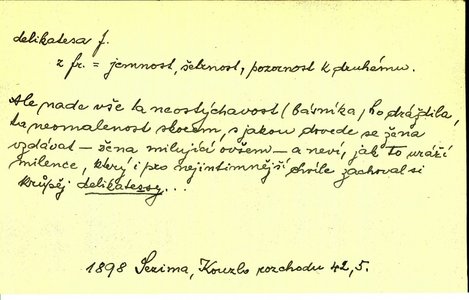 delikatesa f.
z fr. = jemnost, šetrnost, pozornost k druhému.
Ale nade vše ta neostýchavost (básníka) ho dráždila,
ta neomalenost skorem, s jakou dovede se žena
vzdávat – žena milující ovšem – a neví, jak to uráží
milence, který i pro nejintimnější chvíle zachoval si
krůpěj delikatessy...
1898 Sezima, Kouzlo rozchodu 42, 5.